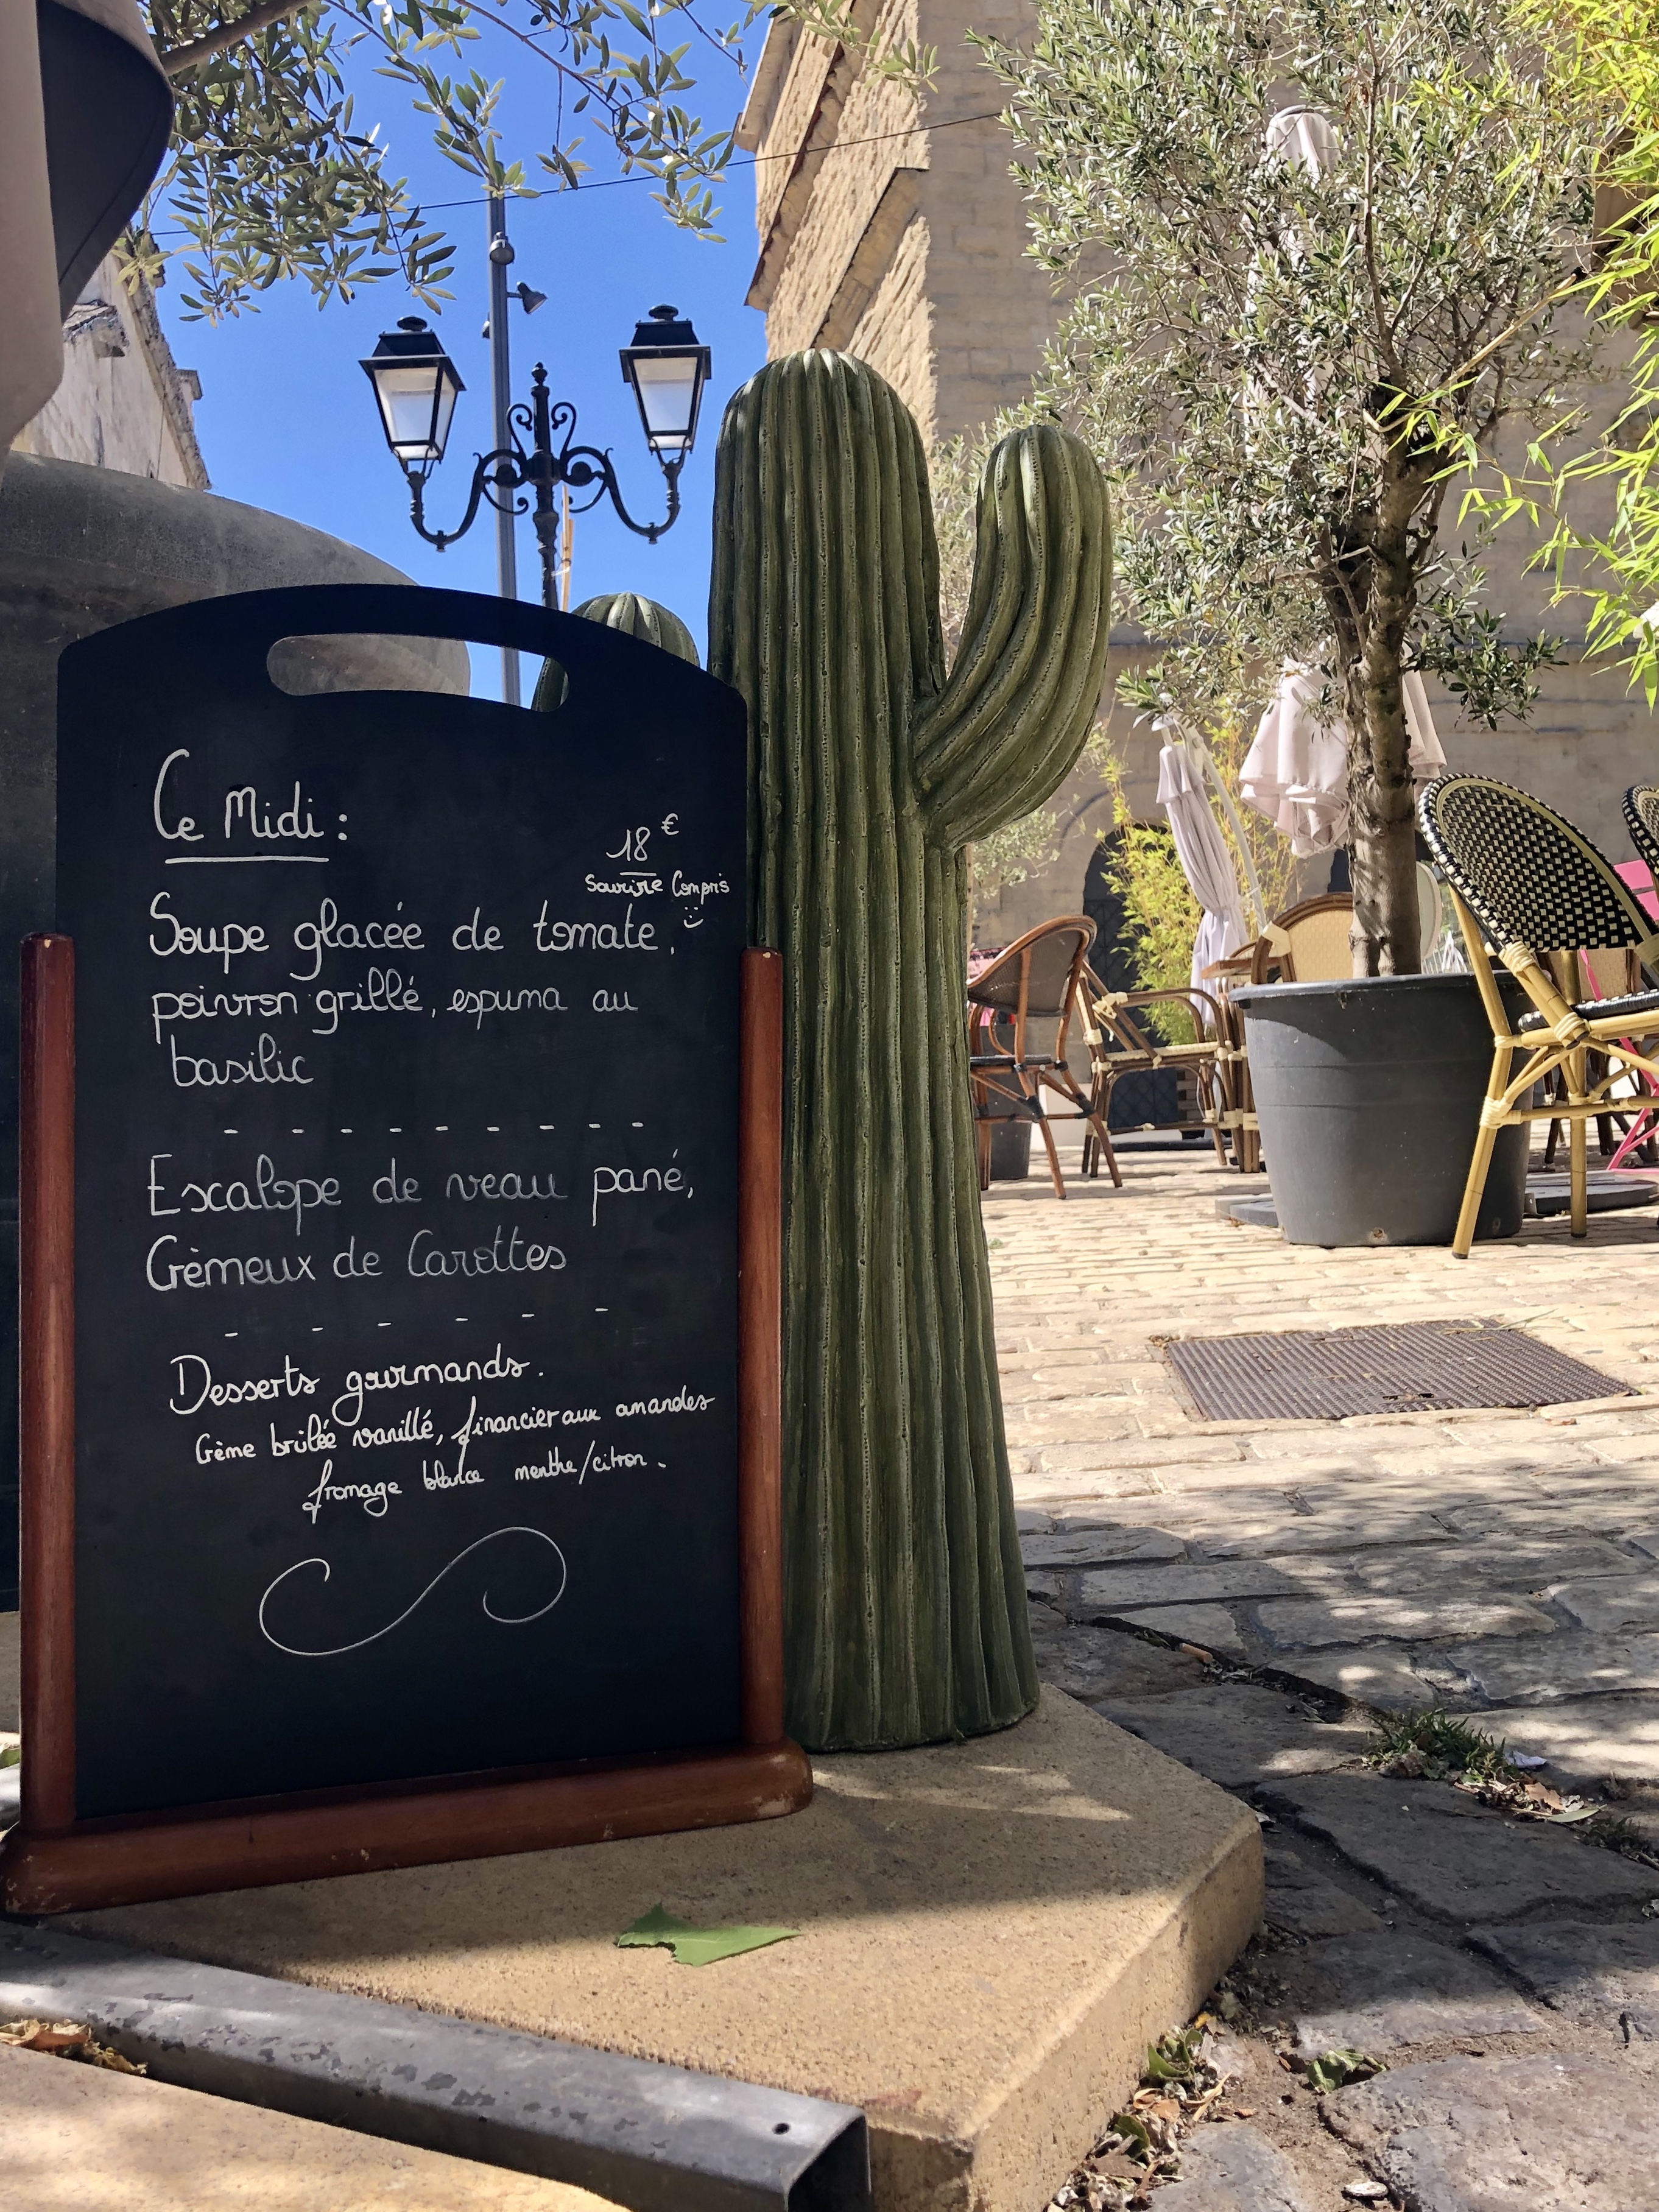 Ce Midi :
18 €
Sourire Compris
Soupe glacée de tomate,
poivron grillé, espuma au
basilic
Escalope de veau pané,
Crèmeux de Carottes
Desserts gourmands.
Crème brûlée vanillé, financier aux amandes
fromage blance menthe/citron.